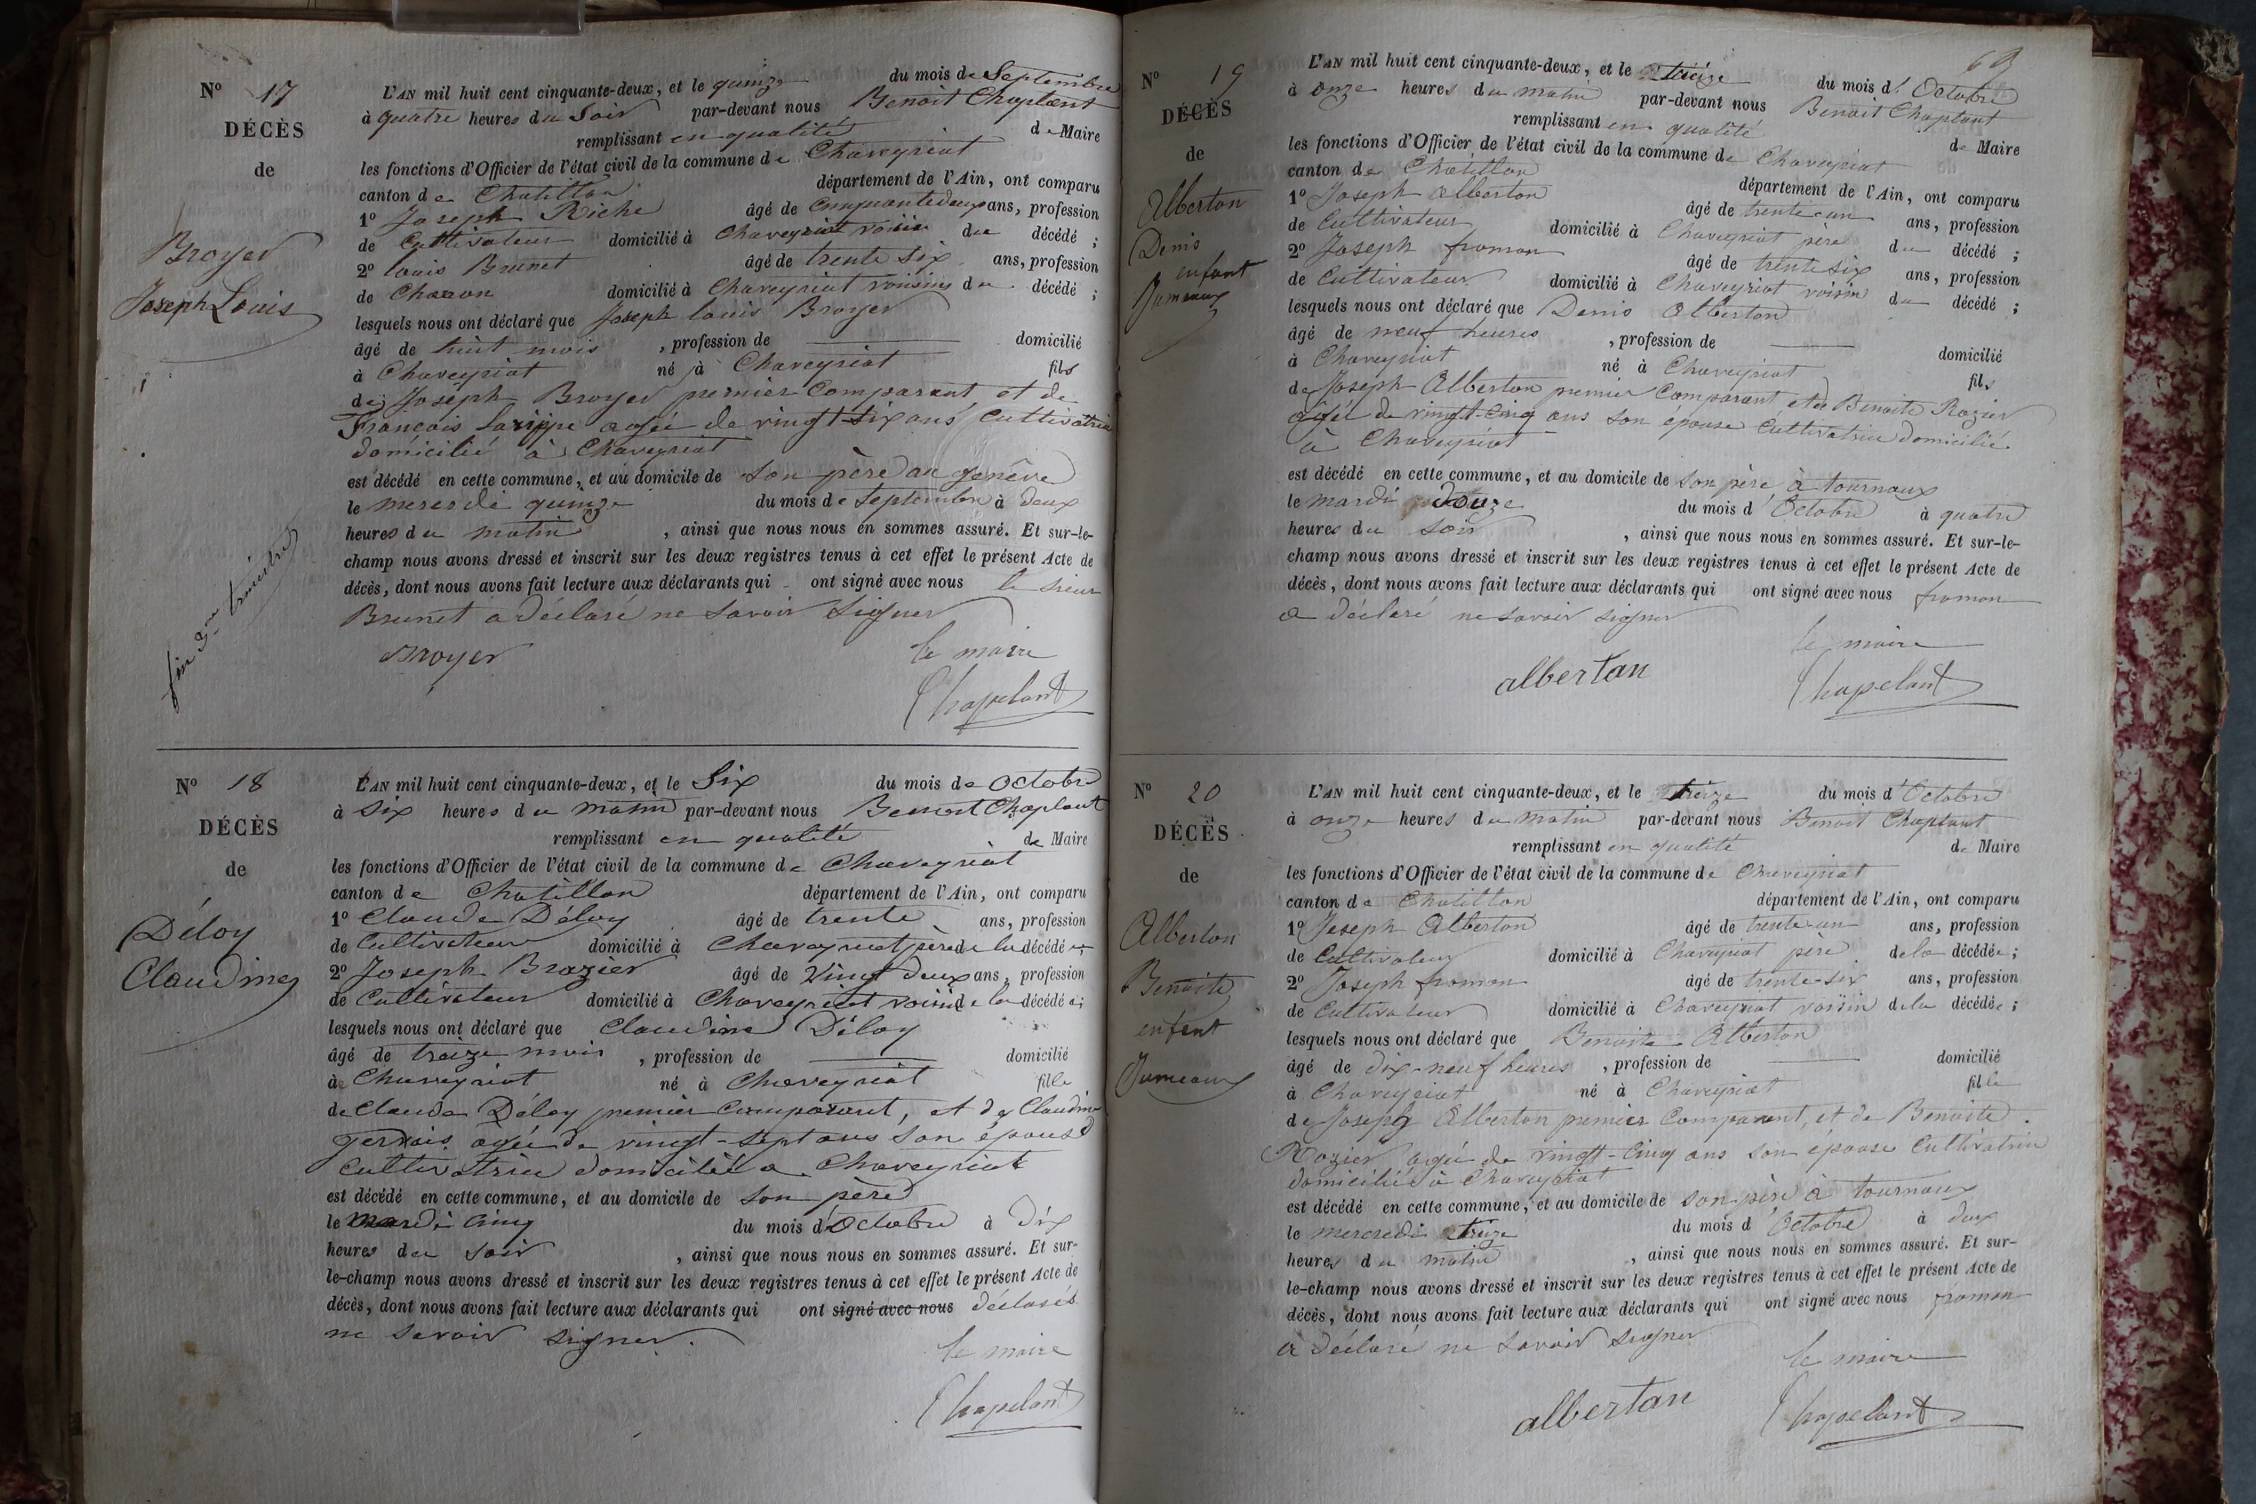 N° 17
DÉCÈS
de
Broyer
Joseph Louis
fin 3me trimestre
L'AN mil huit cent cinquante-deux, et le quinze du mois de Septembre
à quatre heures du Soir par-devant nous Benoit Chaplant
remplissant en qualité de Maire
les fonctions d'Officier de l'état civil de la commune de Chaveyriat
canton de Chatillon département de l'Ain, ont comparu
1° Joseph Riche âgé de cinquante deux ans, profession
de Cultivateur domicilié à Chaveyriat voisin du décédé ;
2° louis Brunet âgé de trente six ans, profession
de Charon domicilié à Chaveyriat voisins du décédé ;
lesquels nous ont déclaré que Joseph louis Broyer
âgé de huit mois , profession de domicilié
à Chaveyriat né à Chaveyriat fils
de Joseph Broyer premier Comparant et de
François agée de vingt-six ans Cultivatrice
domicilié à Chaveyriat
est décédé en cette commune, et au domicile de son père au genêvre
le mercredi quinze du mois de septembre à deux
heures du matin , ainsi que nous nous en sommes assuré. Et sur-le-
champ nous avons dressé et inscrit sur les deux registres tenus à cet effet le présent Acte de
décès, dont nous avons fait lecture aux déclarants qui ont signé avec nous le sieur
Brunet a déclaré ne savoir signer
Broyer le maire
Chapelant
N° 18
DÉCÈS
de
Déloy
Claudine
L'AN mil huit cent cinquante-deux, et le Six du mois de Octobre
à Six heures du matin par-devant nous Benoit Chaplant
remplissant en qualité de Maire
les fonctions d'Officier de l'état civil de la commune de Chaveyriat
canton de Chatillon département de l'Ain, ont comparu
1° Claude Déloy âgé de trente ans, profession
de Cultivateur domicilié à Chaveyriat père de la décédée ;
2° Joseph Brazier âgé de Vingt deux ans, profession
de Cultivateur domicilié à Chaveyriat voisin de la décédée ;
lesquels nous ont déclaré que Claudine Déloy
âgé de treize mois , profession de domicilié
à Chaveyriat né à Chaveyriat fille
de Claude Déloy premier Comparant, et de Claudine
gervais agée de vingt-sept ans son épouse
Cultivatrice domicilié a Chaveyriat
est décédé en cette commune, et au domicile de son père
le mardi cinq du mois d'Octobre à Dix
heures du soir , ainsi que nous nous en sommes assuré. Et sur-
le-champ nous avons dressé et inscrit sur les deux registres tenus à cet effet le présent Acte de
décès, dont nous avons fait lecture aux déclarants qui ont signé avec nous déclarés
ne savoir signer
le maire
Chapelant
69
N° 19
DÉCÈS
de
Alberton
Denis
enfant
Jumeaux
L'AN mil huit cent cinquante-deux, et le treize du mois d'Octobre
à onze heures du matin par-devant nous Benoit Chaplant
remplissant en qualité de Maire
les fonctions d'Officier de l'état civil de la commune de Chaveyriat
canton de Chatillon département de l'Ain, ont comparu
1° Joseph alberton âgé de trente-un ans, profession
de Cultivateur domicilié à Chaveyriat père du décédé ;
2° Joseph fromon âgé de trente six ans, profession
de Cultivateur domicilié à Chaveyriat voisin du décédé ;
lesquels nous ont déclaré que Denis Alberton
âgé de neuf heures , profession de domicilié
à Chaveyriat né à Chaveyriat fils
de Joseph Alberton premier Comparant, et de Benoite Rozier
agée de vingt-cinq ans son épouse Cultivatrice domicilié
à Chaveyriat
est décédé en cette commune, et au domicile de son père à tournoux
le mardi douze du mois d'Octobre à quatre
heures du soir , ainsi que nous nous en sommes assuré. Et sur-le-
champ nous avons dressé et inscrit sur les deux registres tenus à cet effet le présent Acte de
décès, dont nous avons fait lecture aux déclarants qui ont signé avec nous fromon
a déclaré ne savoir signer
le maire
albertan Chapelant
N° 20
DÉCÈS
de
Alberton
Benoite
enfent
Jumeaux
L'AN mil huit cent cinquante-deux, et le treize du mois d'Octobre
à onze heures du matin par-devant nous Benoit Chaplant
remplissant en qualité de Maire
les fonctions d'Officier de l'état civil de la commune de Chaveyriat
canton de Chatillon département de l'Ain, ont comparu
1° Joseph Alberton âgé de trente-un ans, profession
de Cultivateur domicilié à Chaveyriat père de la décédée ;
2° Joseph fromon âgé de trente-six ans, profession
de Cultivateur domicilié à Chaveyriat voisin de la décédée ;
lesquels nous ont déclaré que Benoite Alberton
âgé de dix-neuf heures , profession de domicilié
à Chaveyriat né à Chaveyriat fille
de Joseph Alberton premier Comparant, et de Benoite
Rozier agée de vingt-cinq ans son épouse Cultivatrice
domiciliée à Chaveyriat
est décédé en cette commune, et au domicile de son père à tournoux
le mercredi treize du mois d'Octobre à deux
heures du matin , ainsi que nous nous en sommes assuré. Et sur-
le-champ nous avons dressé et inscrit sur les deux registres tenus à cet effet le présent Acte de
décès, dont nous avons fait lecture aux déclarants qui ont signé avec nous fromon
a déclaré ne savoir signer
le maire
albertan Chapelant